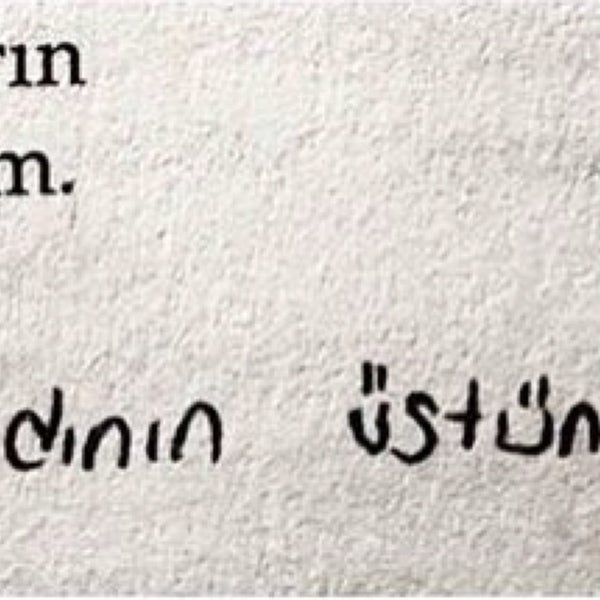 rın
m.
dının üstün